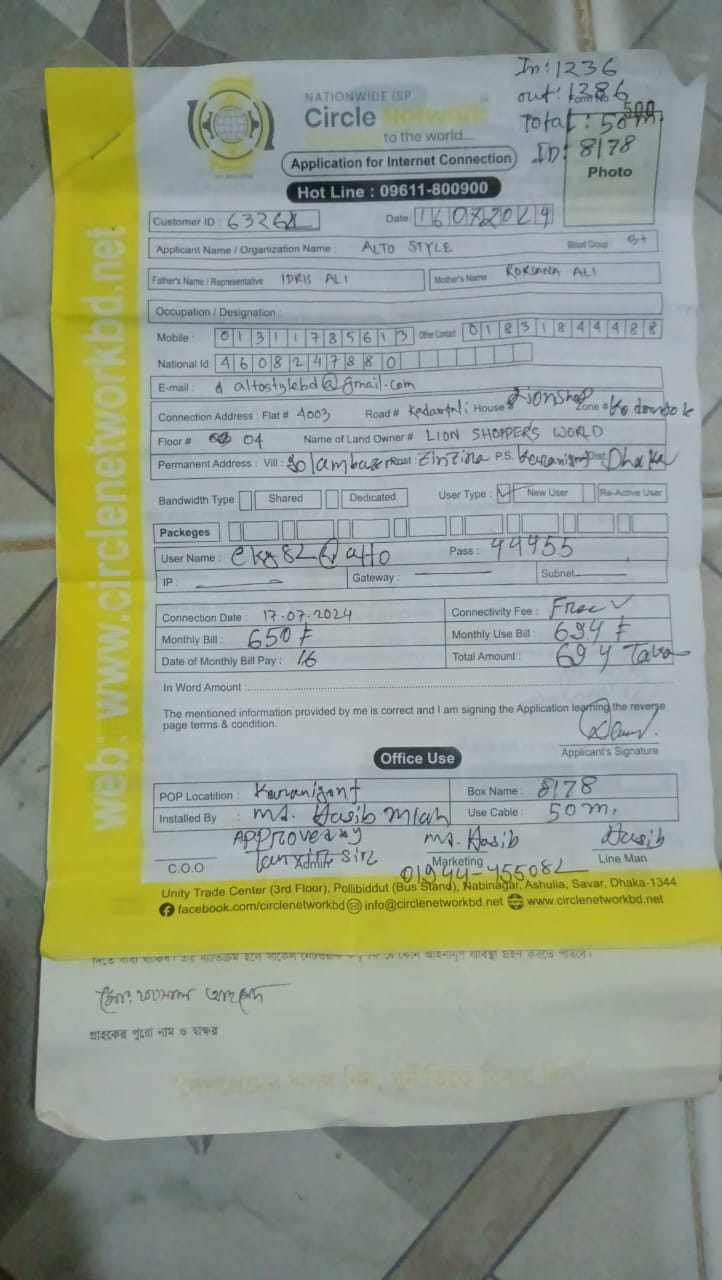 In: 1236
out: 1286
Form No
500
Total: 50m
ID: 8178
Photo
NATIONWIDE ISP
Circle Network
to the world....
Application for Internet Connection
Hot Line : 09611-800900
Customer ID : Date 16072024
Applicant Name / Organization Name : ALTO STYLE Blood Group B+
Father's Name / Representative IDRIS ALI Mother's Name ROKSANA ALI
Occupation / Designation :
Mobile : 01311785613 Other Contact 01831844488
National Id: 4608247880
E-mail : altostylebd@gmail.com
Connection Address : Flat # 4003 Road # House # Lion Shop Zone #
Floor # 04 Name of Land Owner # LION SHOPPER'S WORLD
Permanent Address : Vill : Post : Zinzira P.S. Dist Dhaka
Bandwidth Type Shared Dedicated User Type : New User Re-Active User
Packeges
User Name : Pass : 44455
IP : Gateway : Subnet
Connection Date : 17.07.2024 Connectivity Fee : Free
Monthly Bill : 650 ৳ Monthly Use Bill : 694 ৳
Date of Monthly Bill Pay : 16 Total Amount : 694 Taka
In Word Amount :
The mentioned information provided by me is correct and I am signing the Application learning the reverse
page terms & condition.
Applicant's Signature
Office Use
POP Locatition : Keranigonj Box Name : 8178
Installed By : Md. Hasib Miah Use Cable : 50m.
Approved by Md. Hasib Hasib
C.O.O Admin Marketing Line Man
Unity Trade Center (3rd Floor), Pollibiddut (Bus Stand), Nabinagar, Ashulia, Savar, Dhaka-1344
facebook.com/circlenetworkbd info@circlenetworkbd.net www.circlenetworkbd.net
web: www.circlenetworkbd.net
গ্রাহকের পুরো নাম ও স্বাক্ষর